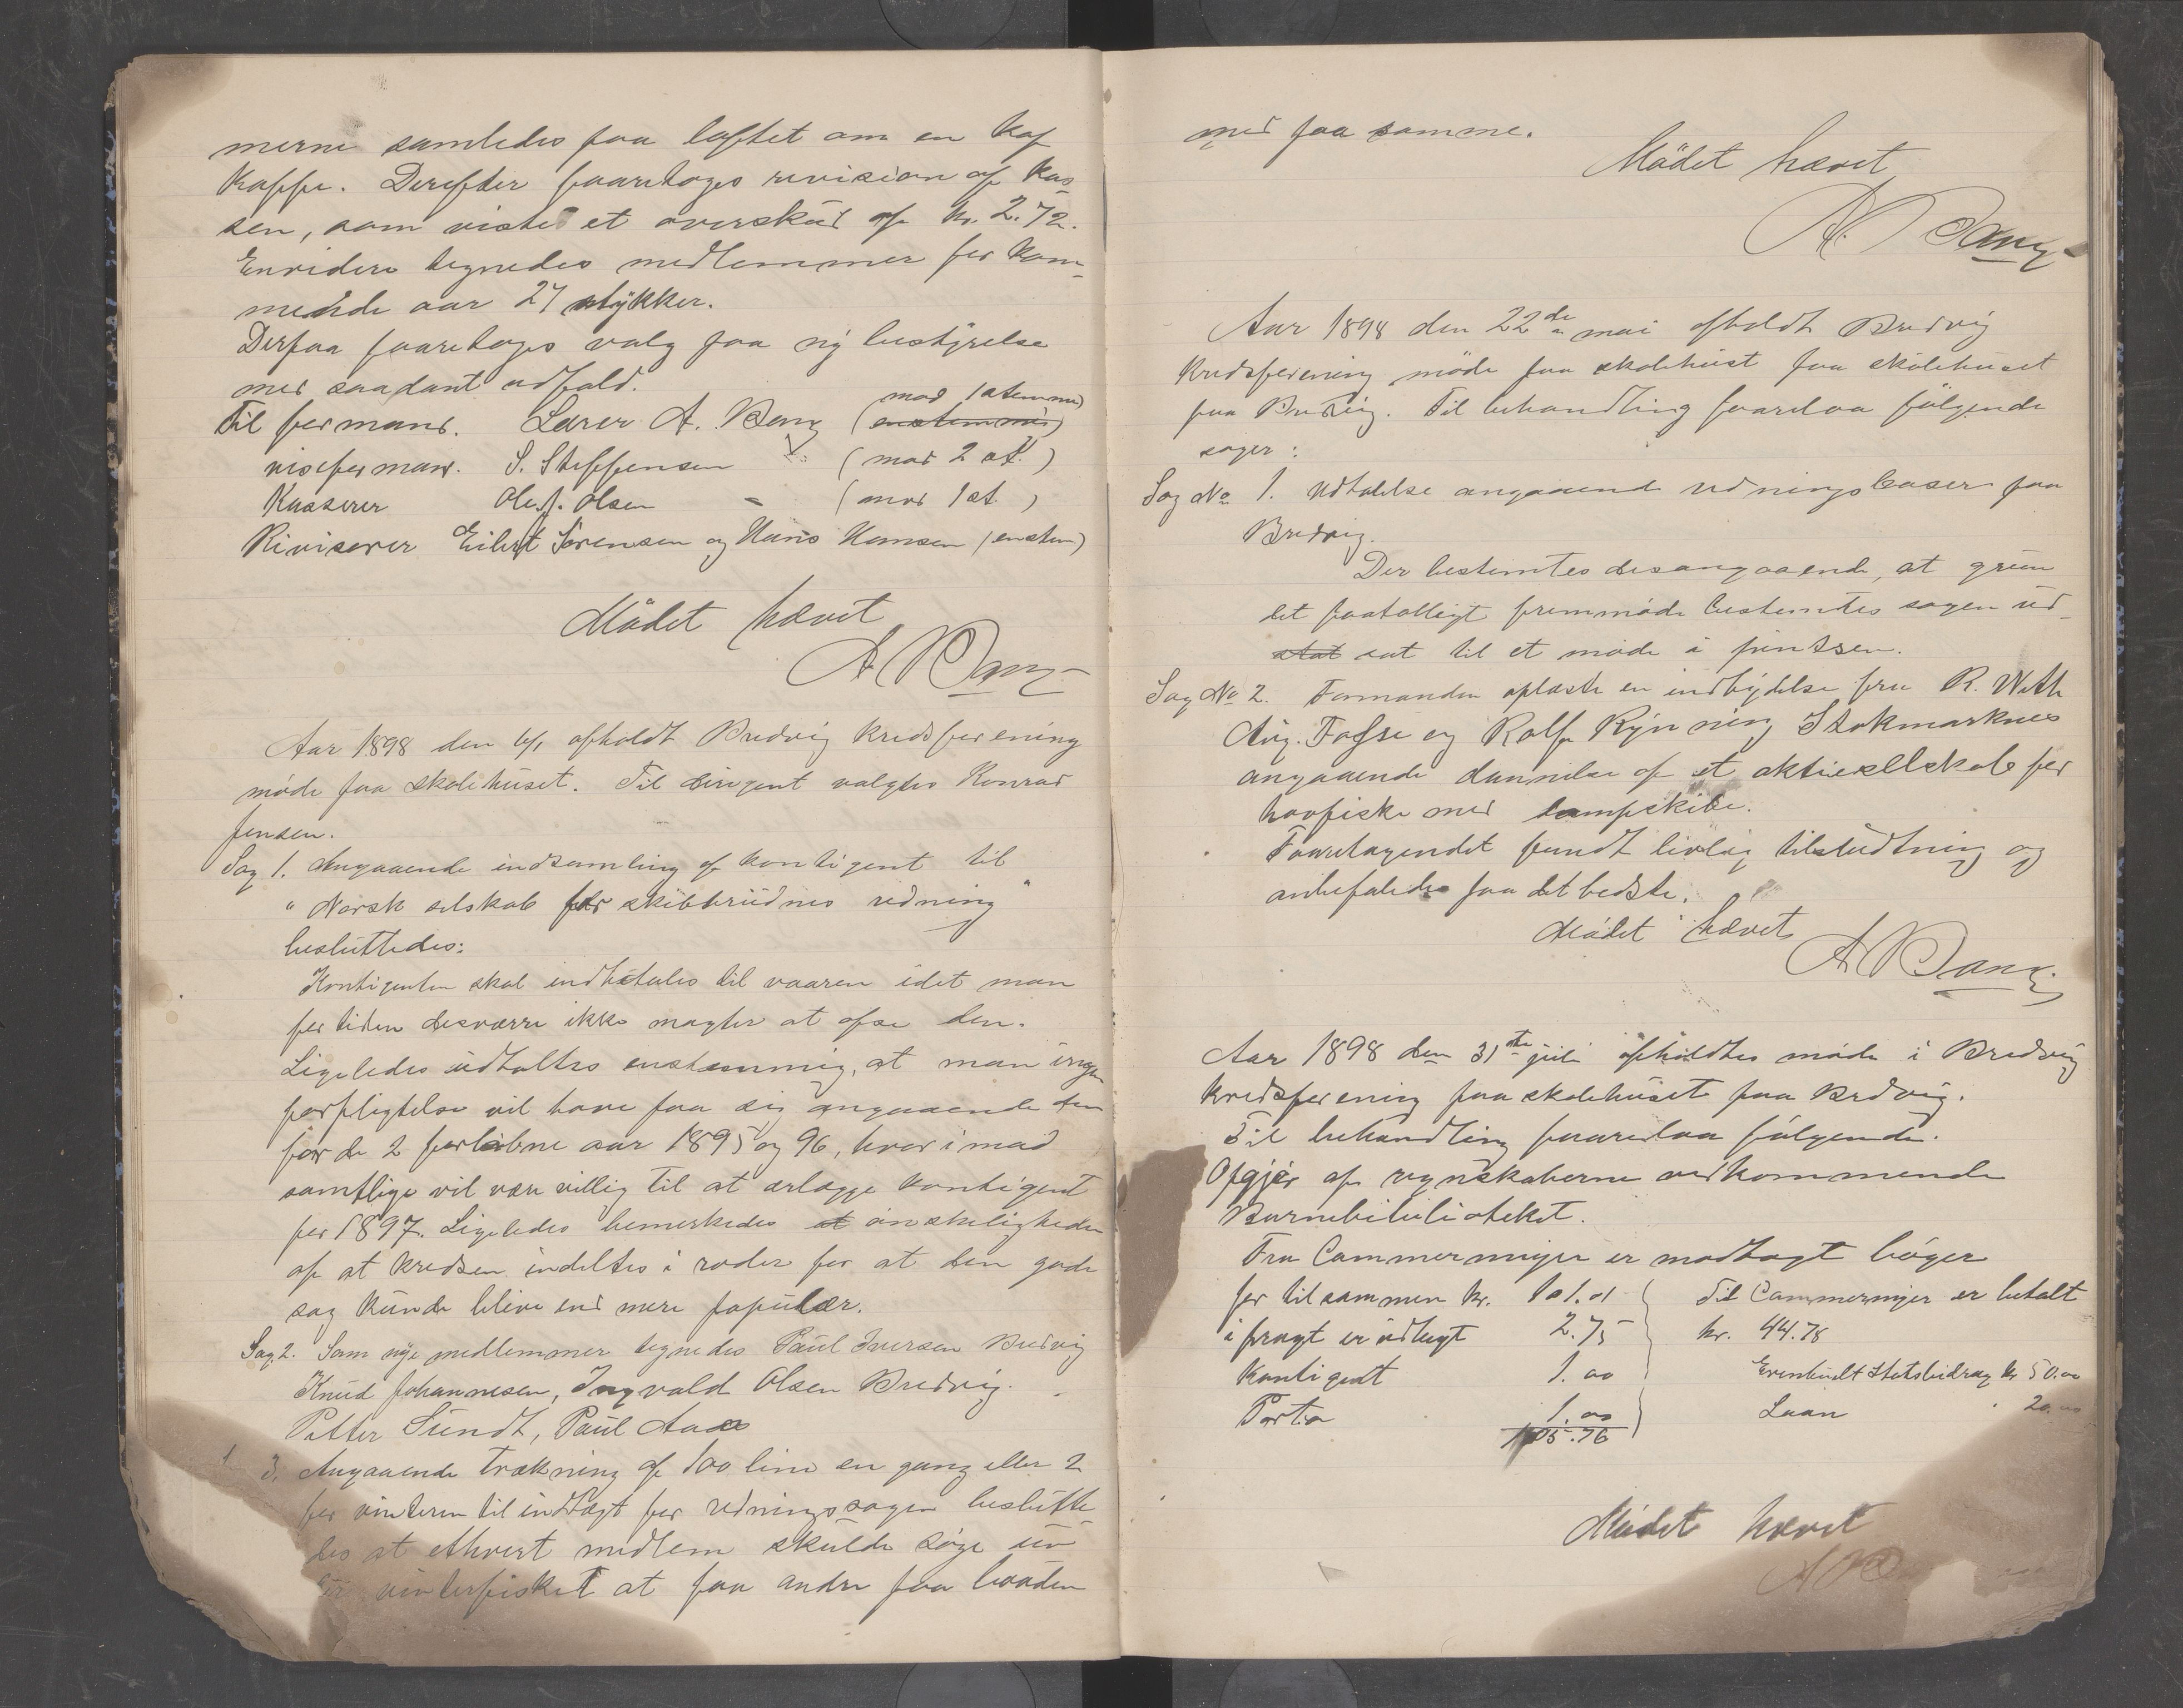 merne samledes paa loftet om en kop
kaffe. Derefter foaretoges revision af kas-
sen, som viste et overskud af kr. 2.72.
Envidere tegnedes medlemmer for kom-
mende aar 27 stykker.
Derpaa foaretoges valg paa ny bestyrelse
med saadant udfald.
Til formand. Lærer A. Bang (mod 1 stemme) (enstemmig)
viseformand. S. Steffensen (mod 2 st.)
Kasserer Ole J. Olsen - (mod 1 st.)
Rivisorer Eilert Sörensen og Hans Hansen (enstem)
Mödet hævet
A Bang
Aar 1898 den 6/1 afholdt Bredvig kredsforening
möde paa skolehuset. Til dirigent valgtes Konrad
Jensen.
Sag 1. Angaaende indsamling af kontigent til
"Norsk selskab for skibbrüdnes redning"
besluttedes:
Kontigenten skal indbetales til vaaren idet man
for tiden desværre ikke magter at afse den.
Ligeledes udtaltes enstemmig, at man ingen
forpligtelse vil have paa sig angaaende den
for de 2 forløbne aar 1895 og 96, hvorimod
samtlige vil være villig til at erlægge kontigent
for 1897. Ligeledes bemerkedes at önskeligheden
af at kredsen inddeltes i roder for at den gode
sag kunde blive end mere populær.
Sag 2. Som nye medlemmer tegnedes Paul Iversen Bredvig
Knud Johannesen, Ingvald Olsen Bredvig.
Petter Sundt, Paul Aas
3. Angaaende trækning af 100 line en gang eller 2
for vinteren til indtægt for redningssagen beslutte-
des at ethvert medlem skulde söge un
der vinterfisket at faa andre paa baaden
med paa samme.
Mödet hævet
A. Bang
Aar 1898 den 22de mai afholdt Bredvig
kredsforening möde paa skolehust paa skolehuset
paa Bredvig. Til behandling foarelaa fölgende
sager:
Sag No 1. Udtalelse angaaende redningsbaser paa
Bredvig.
Der bestemtes desangaaende, at grun
det faatalligt fremmöde bestemtes sagen ud-
stat sat til et möde i pintsen.
Sag No 2. Formanden oplæste en indbydelse fra R. Wøth
Aug. Fosse og Rolf Rynning Stokmarknes
angaaende dannelse af et aktieselskab for
havfiske med dampskibe.
Foaretagendet fandt livlig tilslutning og
anbefaledes paa det bedste.
Mödet hævet
A Bang
Aar 1898 den 31te juli afholdtes möde i Bredvig
kredsforening paa skolehuset paa Bredvig.
Til behandling foarelaa fölgende.
Opgjör af regnskaberne vedkommende
Barnebibliotekt.
Fra Cammermeyer er modtagt böger
for tilsammen kr. 101.01 Til Cammermeyer er betalt
i fragt er udlagt 2.75 kr. 44.78
Kontigent 1.00 Eventuelt Statsbidrag kr 50.00
Porto 1.00 Laan 20.00
105.76
Mödet hævet